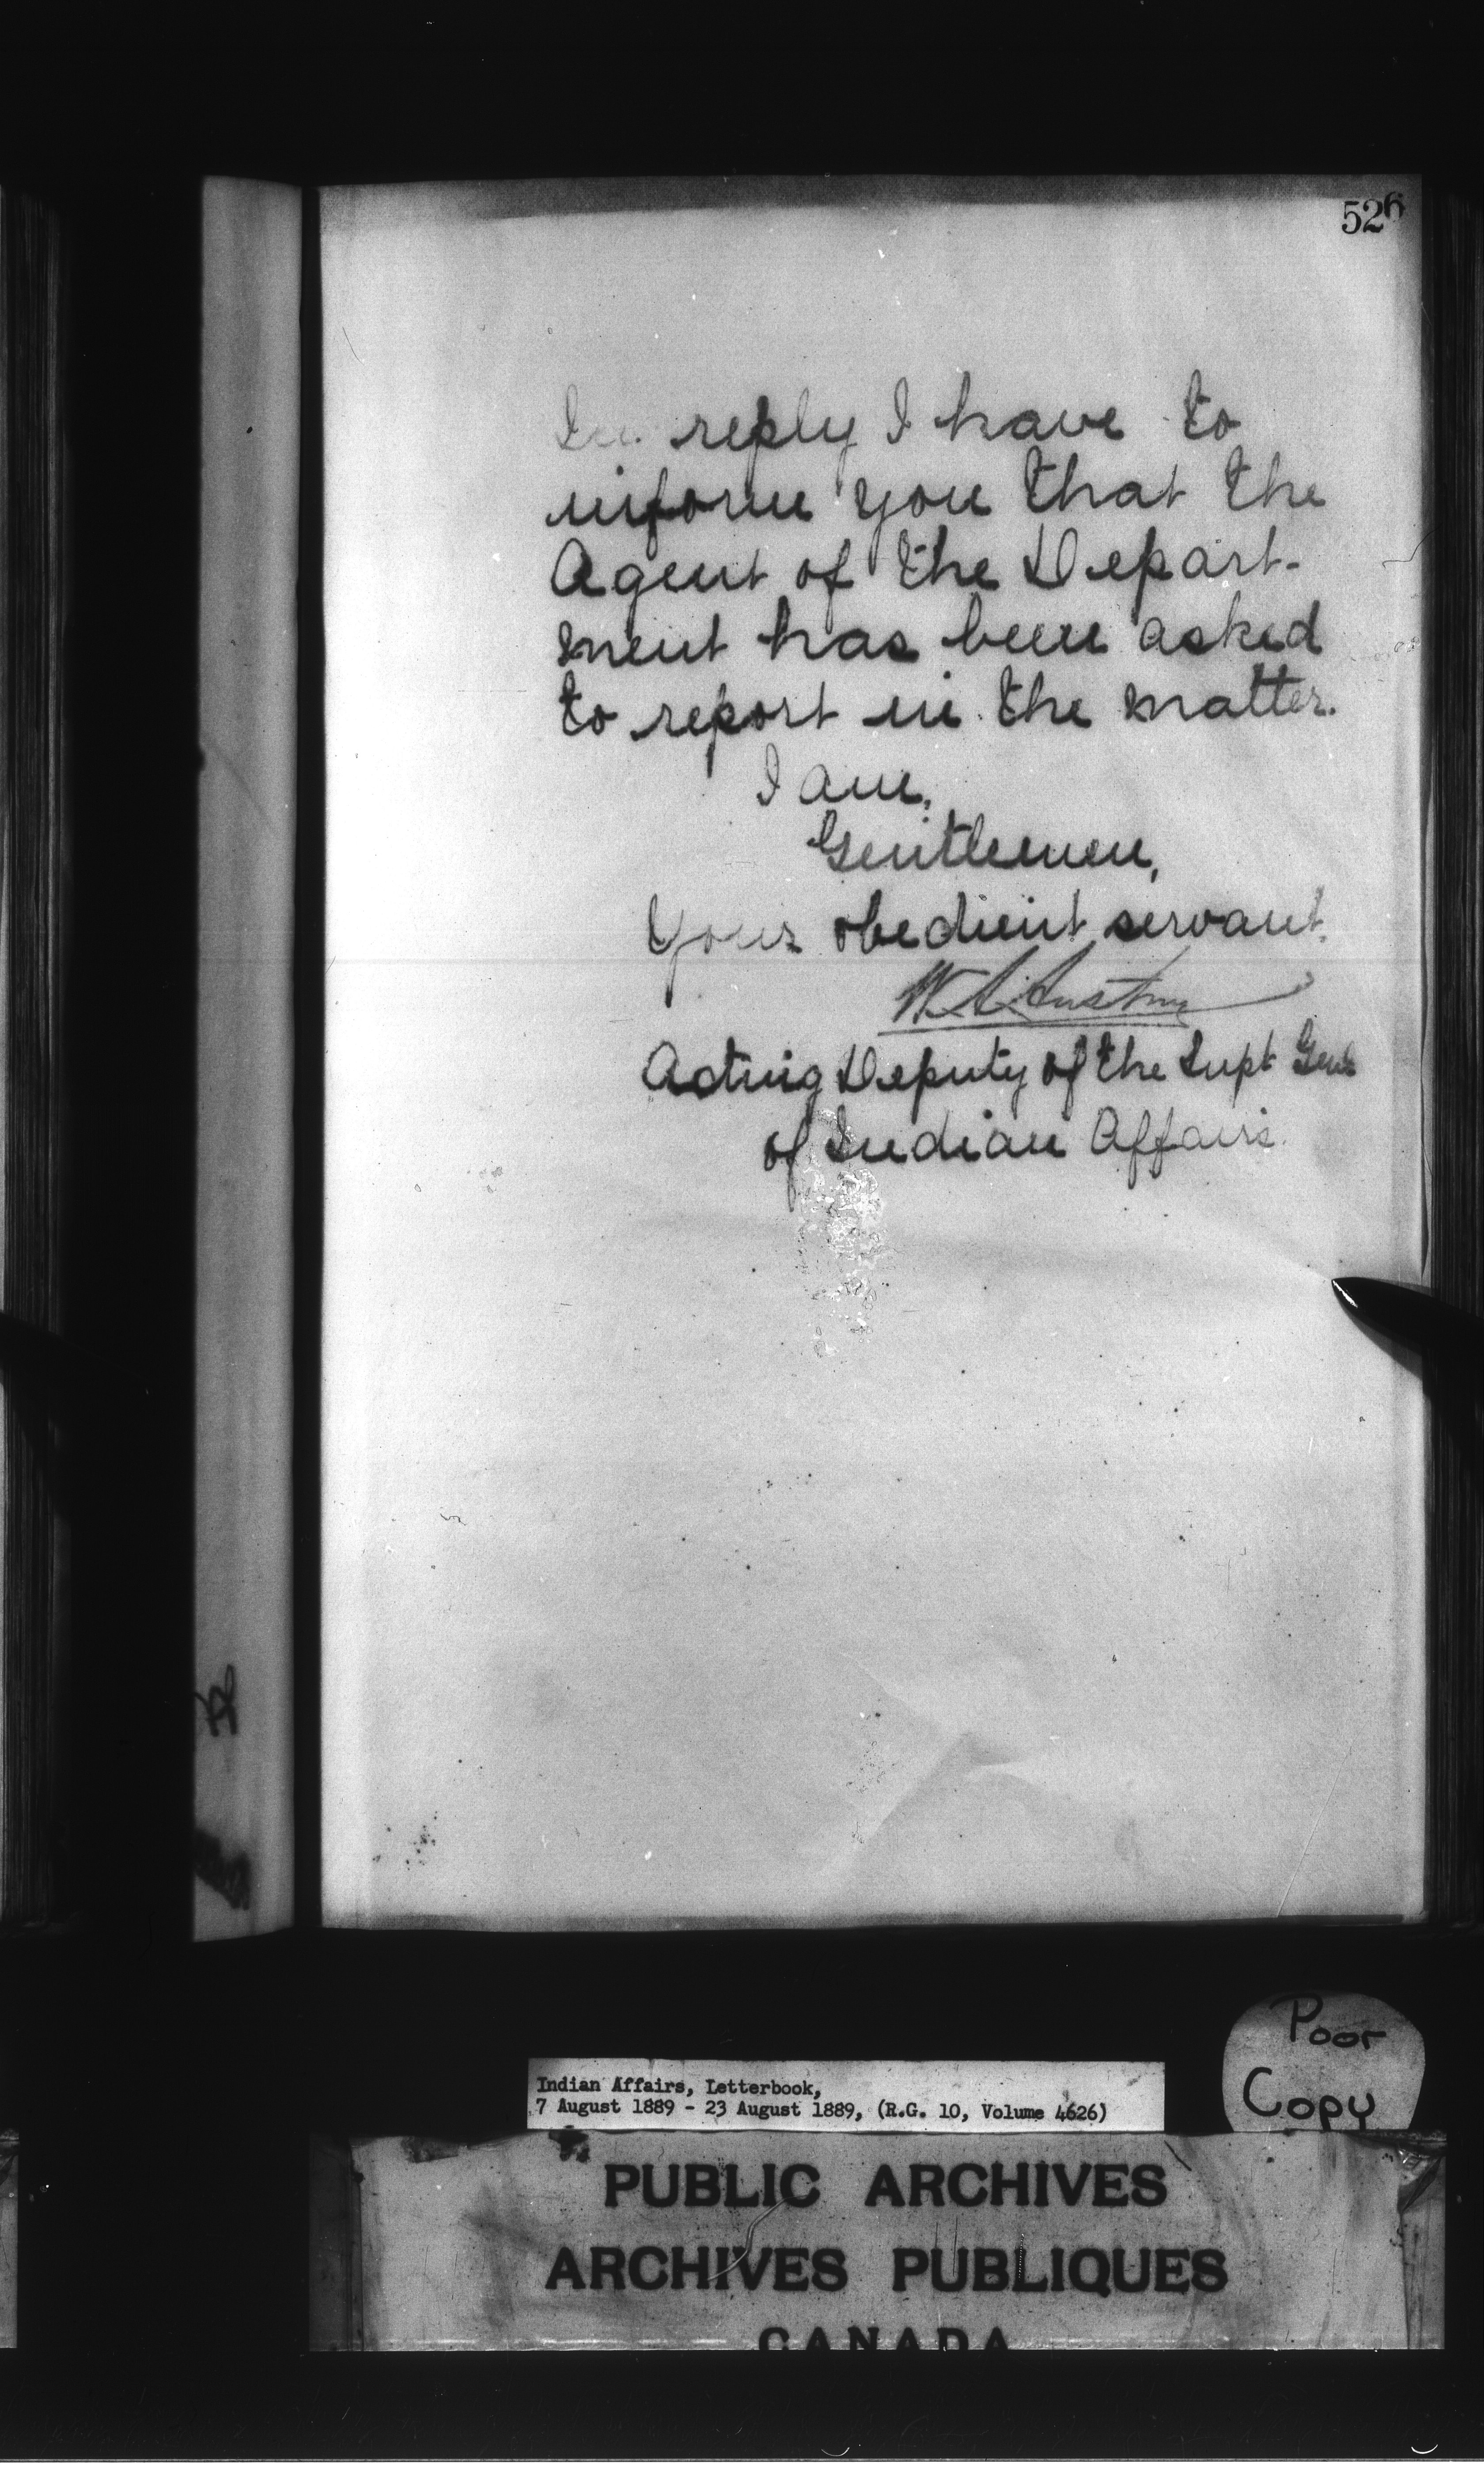 526
In reply I have to
inform you that the
Agent of the Depart-
ment has been asked
to report in the matter.
I am,
Gentlemen,
Your obedient servant.
W A Austin
Acting Deputy of the Supt Genl
of Indian Affairs.
Poor
Copy
Indian Affairs, Letterbook,
7 August 1889 - 23 August 1889, (R.G. 10, Volume 4626)
PUBLIC ARCHIVES
ARCHIVES PUBLIQUES
CANADA